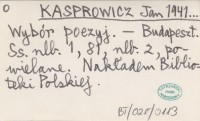 O KASPROWICZ Jan 1941...
Wybór poezyj. — Budapeszt.
Ss. nlb. 1, 81, nlb. 2, po-
wielane. Nakładem Biblio-
teki Polskiej.
BJ/020/0113